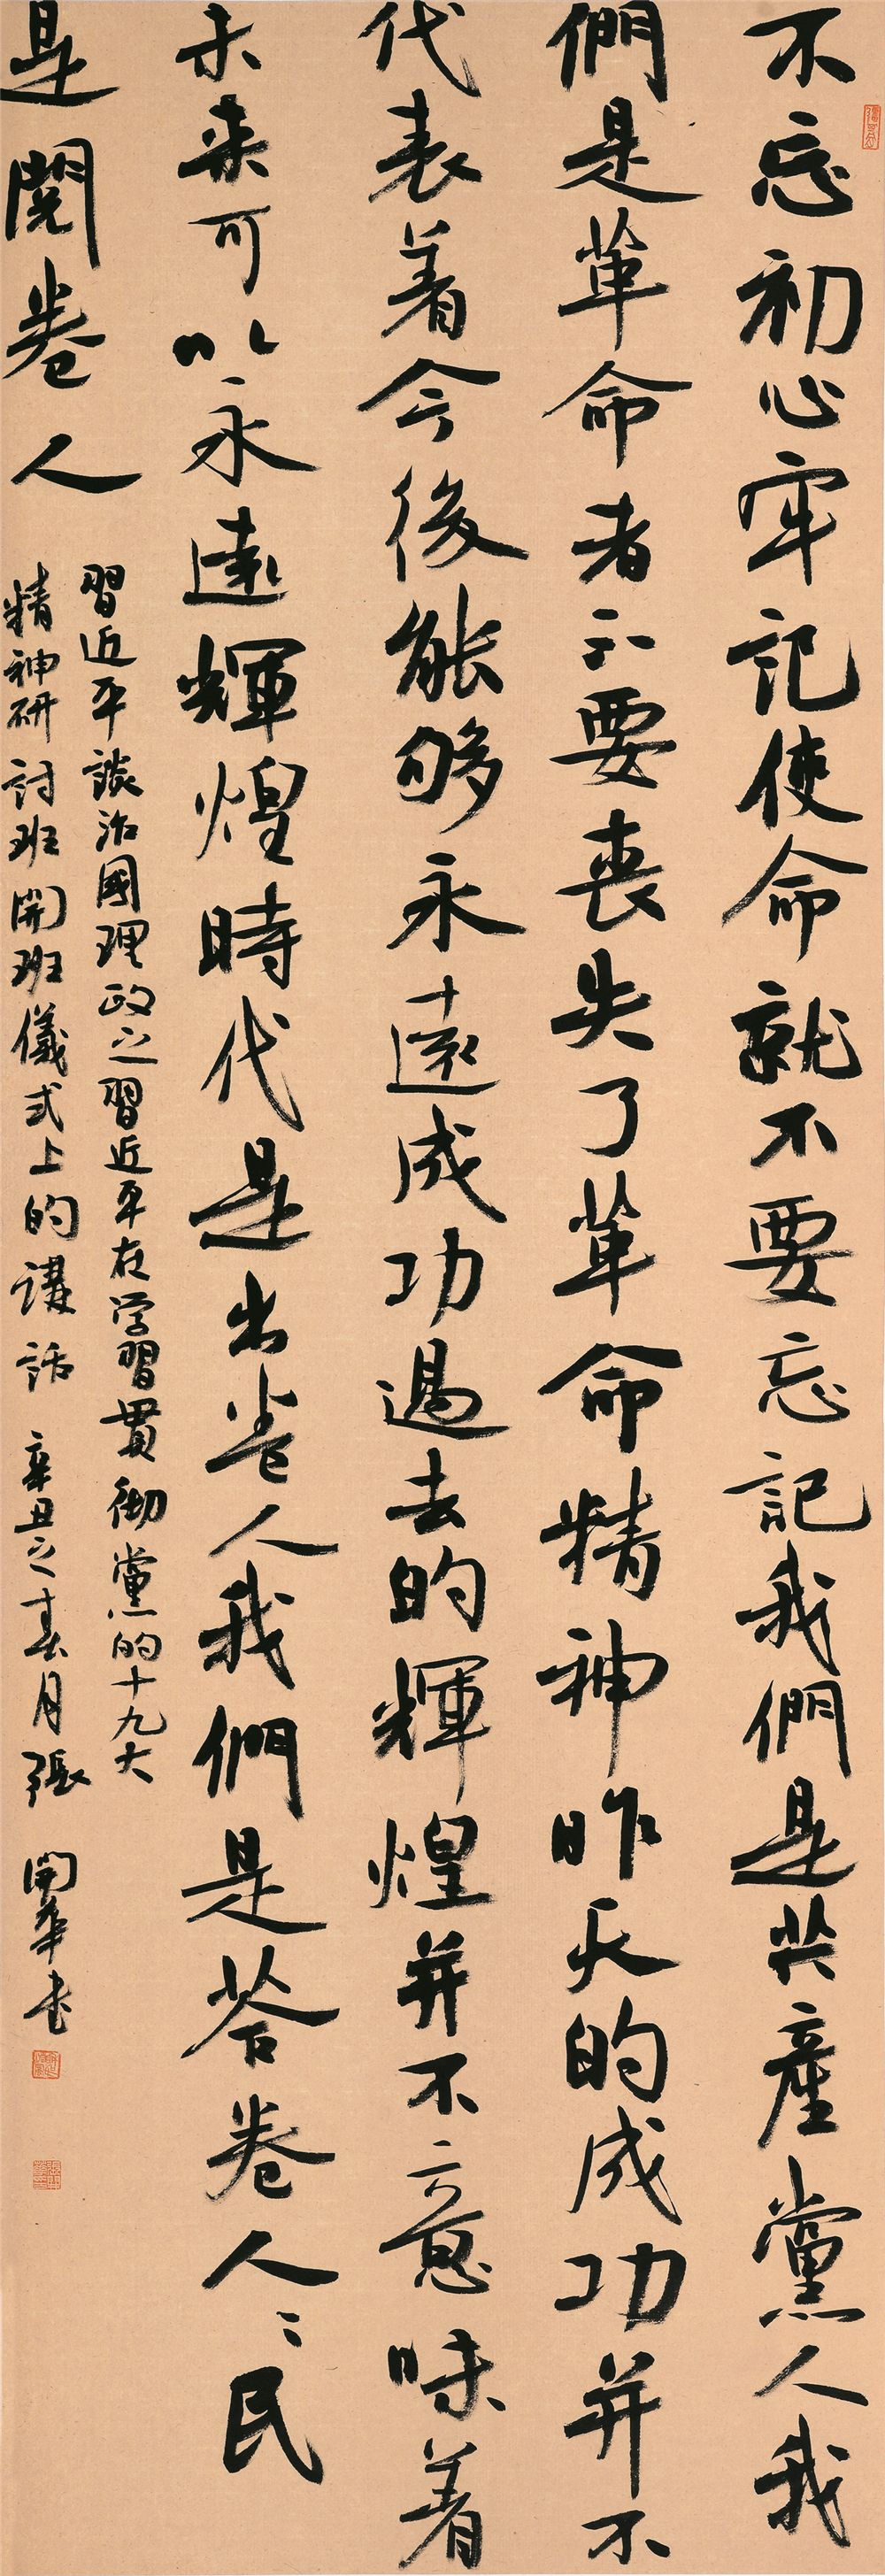 不忘初心牢記使命就不要忘記我們是共產黨人我
們是革命者不要喪失了革命精神昨天的成功并不
代表着今後能够永遠成功過去的輝煌并不意味着
未来可以永遠輝煌時代是出卷人我們是答卷人〻民
是閱卷人
習近平談治國理政之習近平在学習貫彻黨的十九大
精神研討班開班儀式上的講話 辛丑之春月張開華书